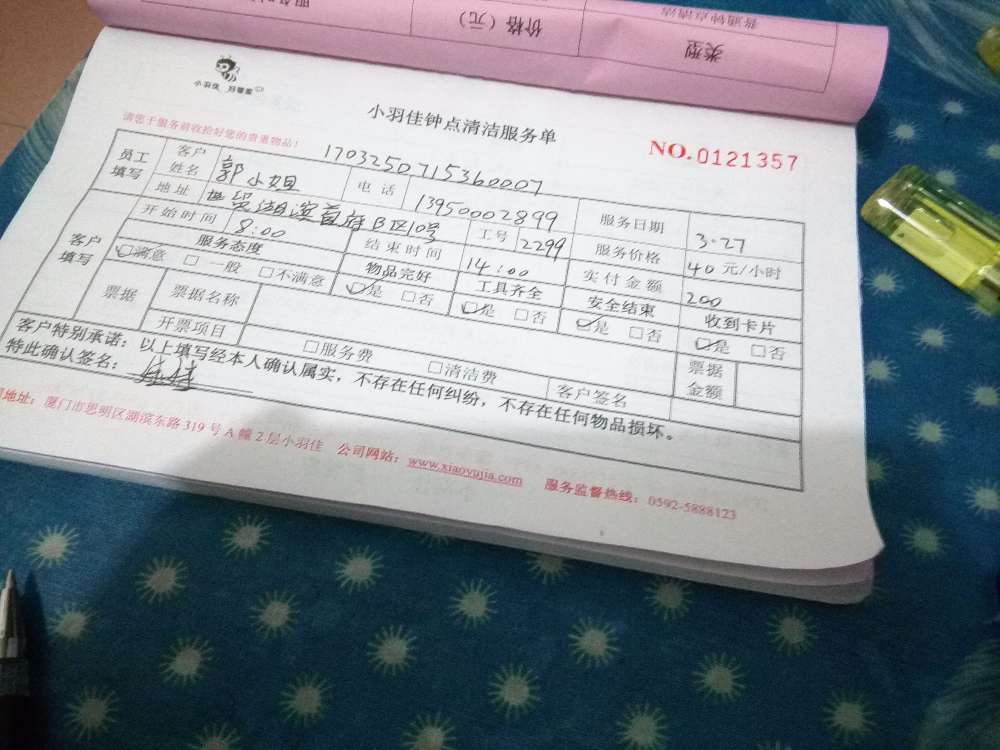 普通钟点清洁
价格（元）
类型
小羽佳 好管家
小羽佳钟点清洁服务单
请您于服务前收拾好您的贵重物品！
NO.0121357
1703250715360007
员工填写 客户姓名 郭小姐 电话 13950002899 服务日期 3.27
地址 世贸湖滨首府B区10号 工号 2299 服务价格 40元/小时
客户填写 开始时间 8:00 结束时间 14:00 实付金额 200
服务态度 物品完好 工具齐全 安全结束 收到卡片
☑满意 □一般 □不满意 ☑是 □否 ☑是 □否 ☑是 □否 ☑是 □否
票据 票据名称 票据金额
开票项目 □服务费 □清洁费 客户签名
客户特别承诺：以上填写经本人确认属实，不存在任何纠纷，不存在任何物品损坏。
特此确认签名：
地址：厦门市思明区湖滨东路319号A幢2层小羽佳 公司网站：www.xiaoyujia.com 服务监督热线：0592-5888123